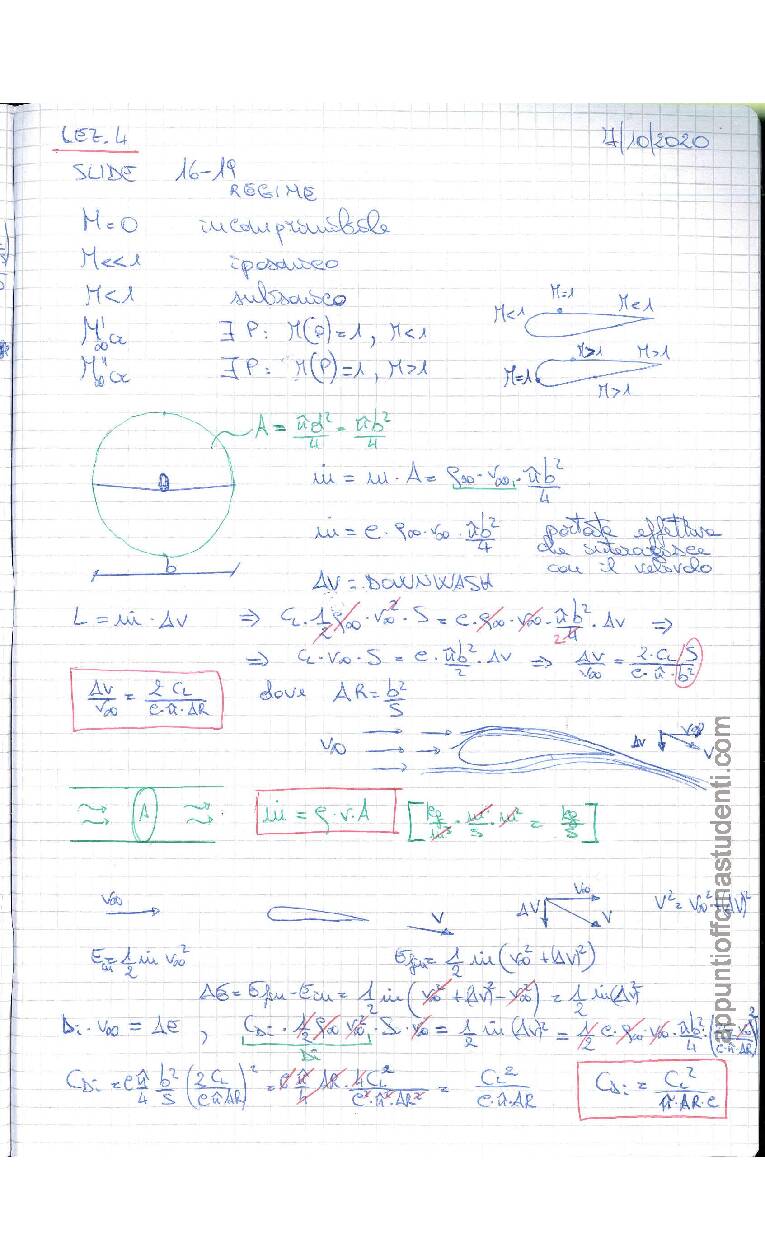 LEZ. 4 7/10/2020
SLIDE 16-19
REGIME
M=0 incomprimibile
M<<1 iposonico
M<1 subsonico
M'∞cr ∃ P: M(P)=1, M<1
M"∞cr ∃ P: M(P)=1, M>1
M<1 M=1 M<1
M=1 M>1 M>1 M>1
A = πd²/4 = πb²/4
ṁ = m · A = ρ∞ · V∞ · πb²/4
ṁ = e · ρ∞ · V∞ · πb²/4 portata effettiva
che interagisce
con il velivolo
b
ΔV = DOWNWASH
L = ṁ · ΔV ⇒ CL · 1/2 ρ∞ · V∞² · S = e · ρ∞ · V∞ · πb²/4 · ΔV ⇒
⇒ CL · V∞ · S = e · πb²/2 · ΔV ⇒ ΔV/V∞ = 2·CL·S/(e·π·b²)
ΔV/V∞ = 2CL/(e·π·AR) dove AR = b²/S
V∞ ΔV V∞ V
A ṁ = ρ·V·A [kg/m³ · m/s · m² = kg/s]
V∞ V ΔV V∞ V V² = V∞² + (ΔV)²
Ein = 1/2 ṁ V∞² Efin = 1/2 ṁ (V∞² + (ΔV)²)
ΔE = Efin - Ein = 1/2 ṁ (V∞² + (ΔV)² - V∞²) = 1/2 ṁ (ΔV)²
Di · V∞ = ΔE , CDi · 1/2 ρ∞ V∞² · S · V∞ = 1/2 ṁ (ΔV)² = 1/2 e · ρ∞ · V∞ · πb²/4 · (2CL V∞/(e·π·AR))²
Di
CDi = e π/4 b²/S (2CL/(eπAR))² = e π/4 AR · 4CL²/(e²·π²·AR²) = CL²/(e·π·AR)
CDi = CL²/(π·AR·e)
appuntiofficinastudenti.com